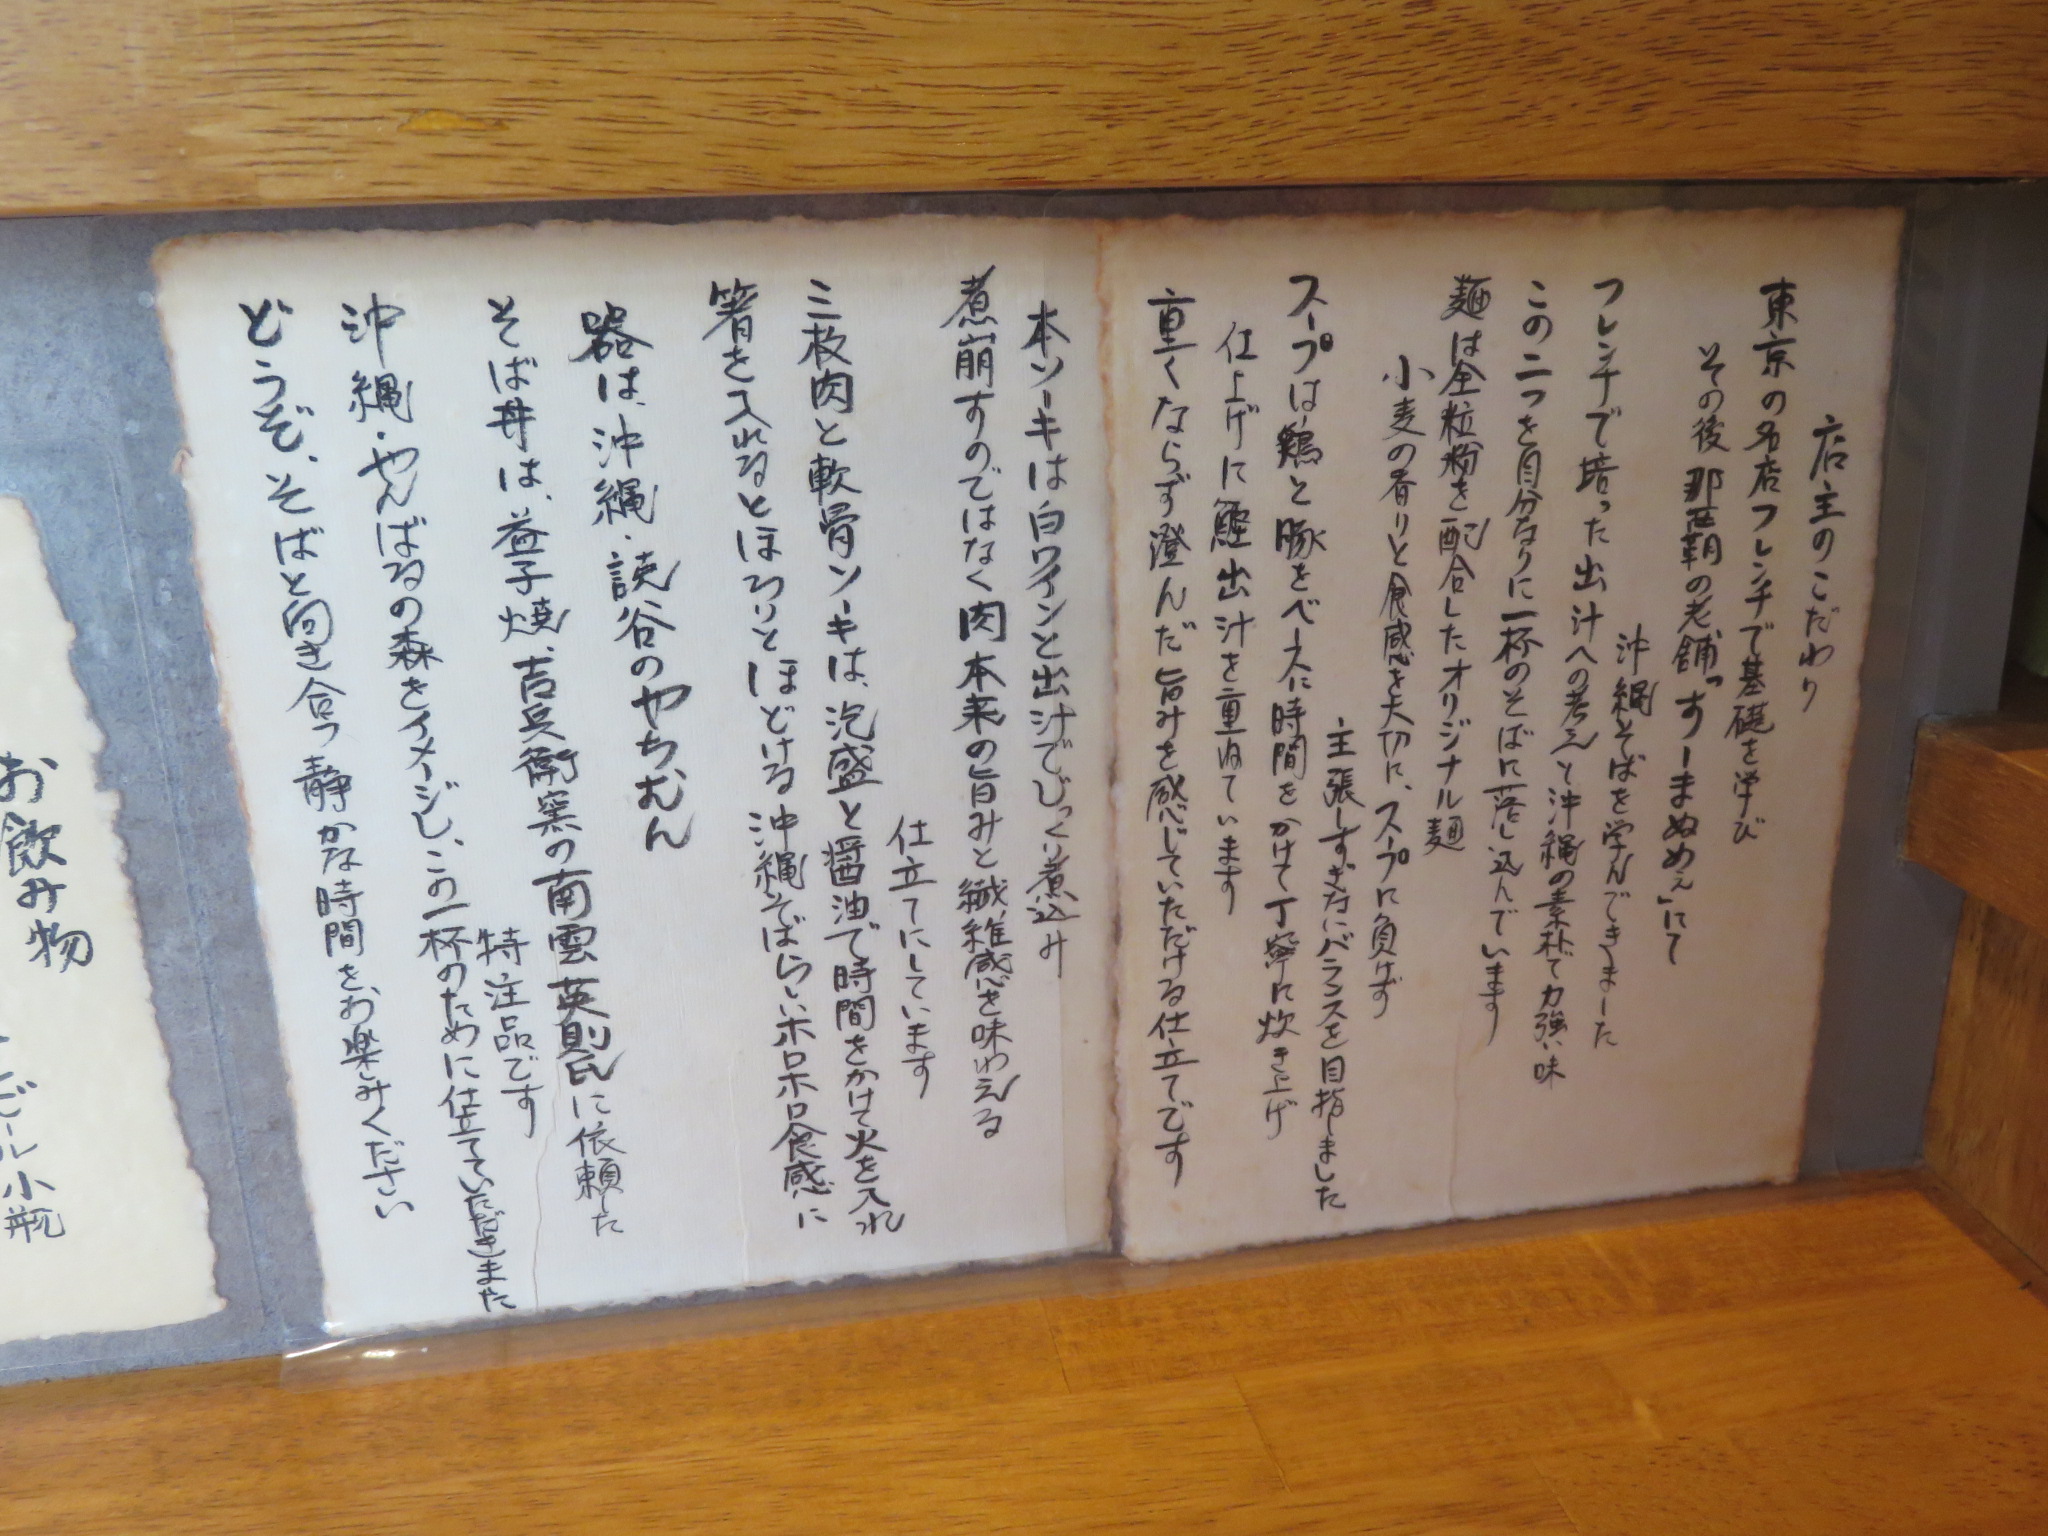 店主のこだわり
東京の名店フレンチで基礎を学び
その後 那覇の老舗「すーまぬめぇ」にて
沖縄そばを学んできました
フレンチで培った出汁への考えと沖縄の素朴で力強い味
この二つを自分なりに一杯のそばに落し込んでいます
麺は全粒粉を配合したオリジナル麺
小麦の香りと食感を大切に、スープに負けず
主張しすぎないバランスを目指しました
スープは鶏と豚をベースに時間をかけて丁寧に炊き上げ
仕上げに鰹出汁を重ねています
重くならず澄んだ旨みを感じていただける仕立てです
本ソーキは白ワインと出汁でじっくり煮込み
煮崩すのではなく肉本来の旨みと繊維感を味わえる
仕立てにしています
三枚肉と軟骨ソーキは、泡盛と醤油で時間をかけて火を入れ
箸を入れるとほろりとほどける沖縄そばらしいホロホロ食感に
器は、沖縄・読谷のやちむん
そば丼は、益子焼、吉兵衛窯の南雲英則氏に依頼した
特注品です
沖縄・やんばるの森をイメージし、この一杯のために仕立てていただきました
どうぞ、そばと向き合う静かな時間をお楽しみください
お飲み物
ビール小瓶